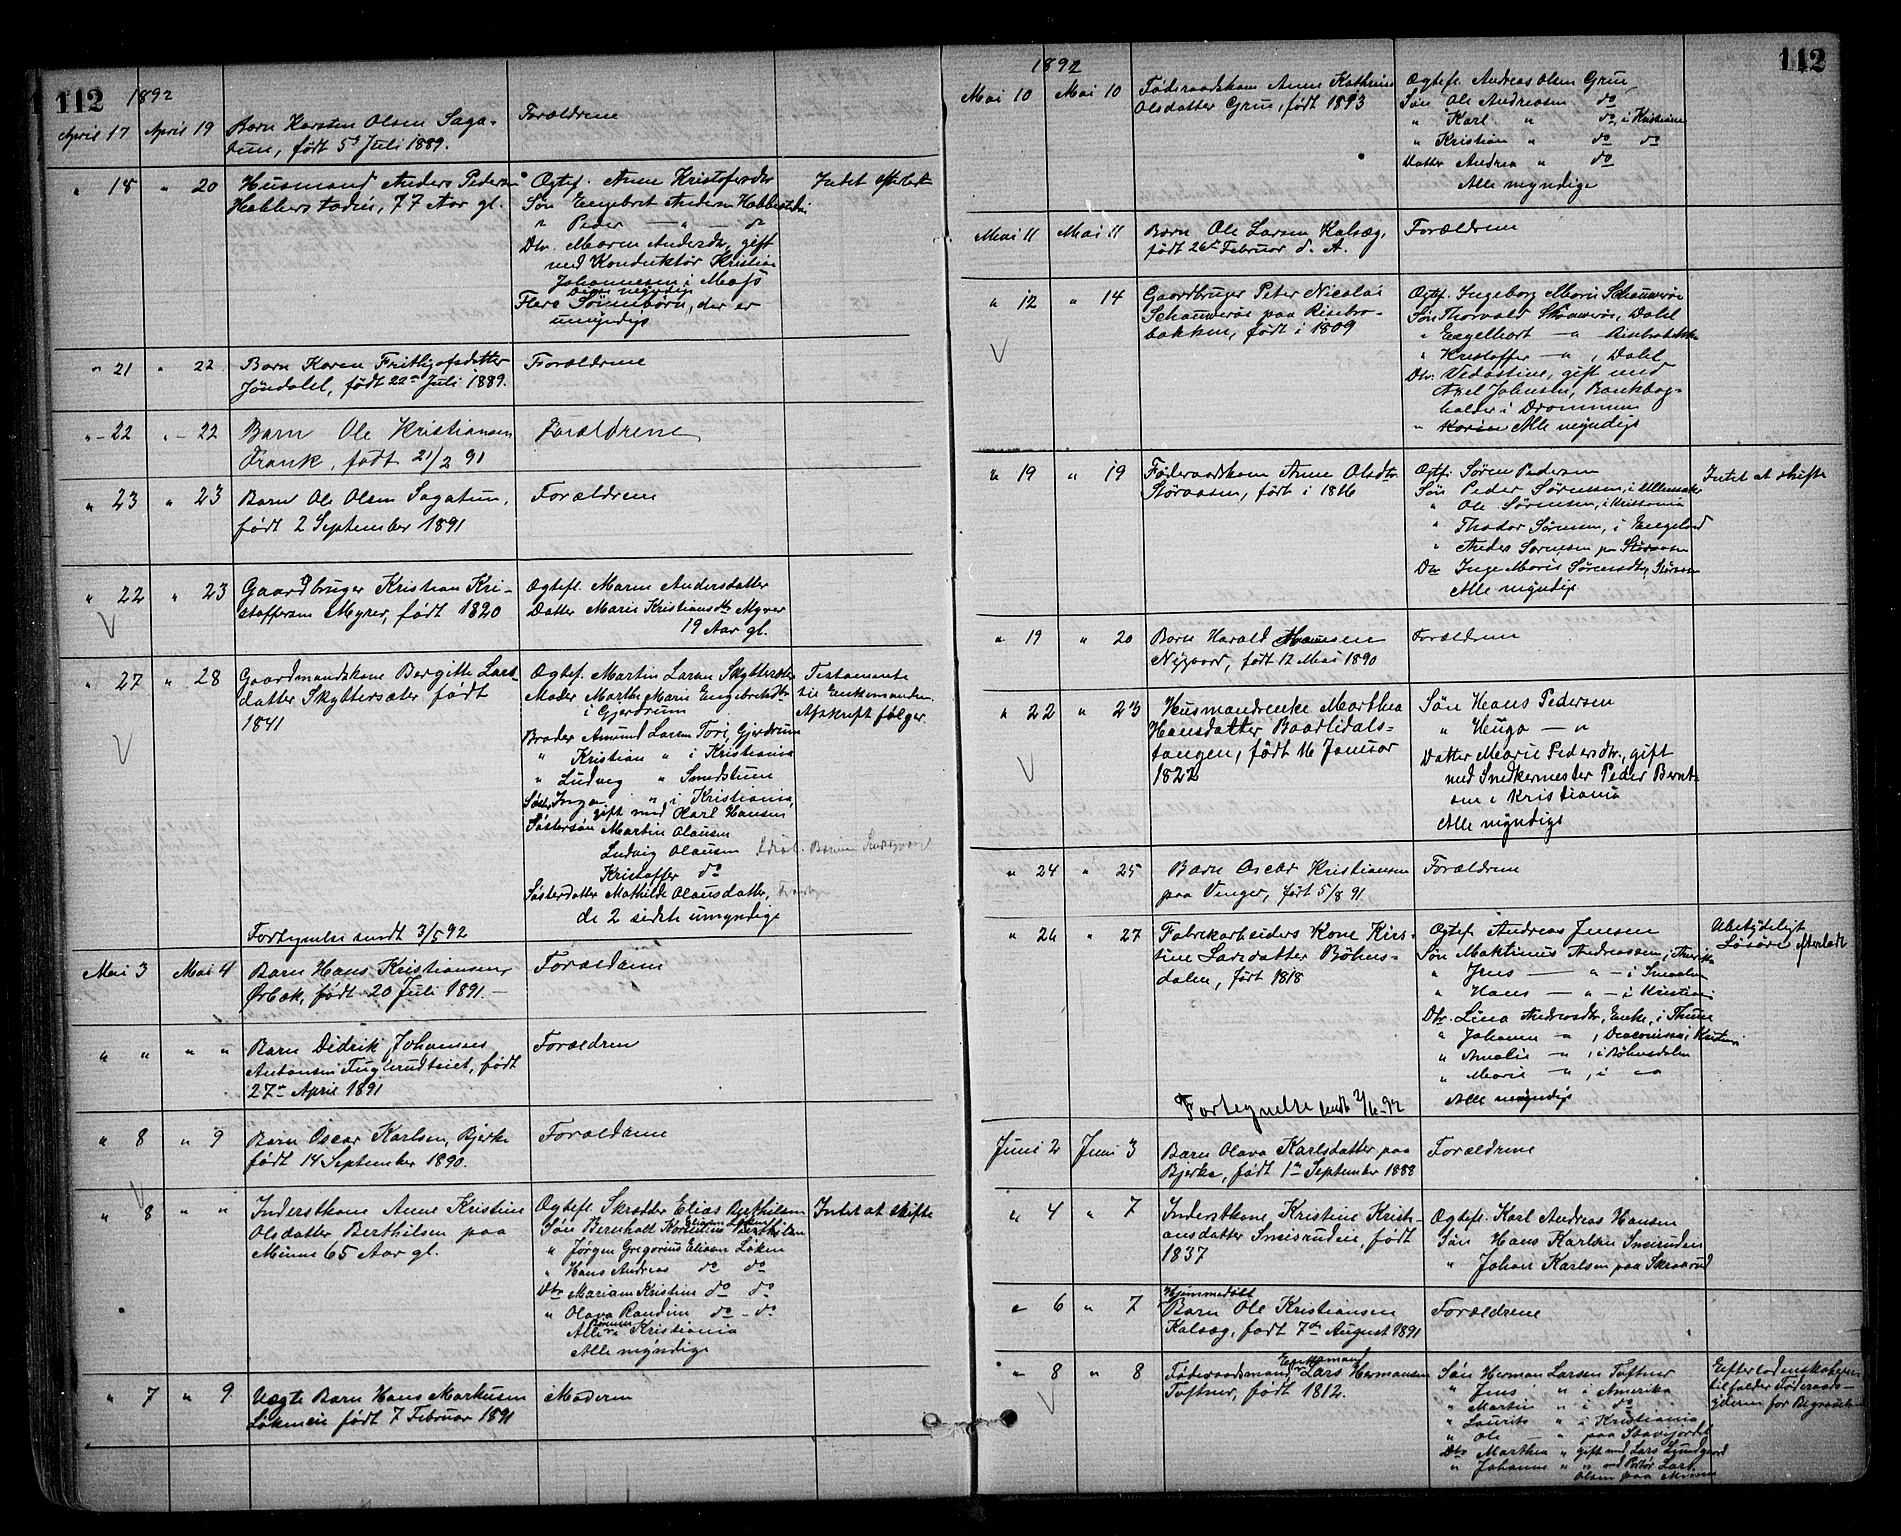 112 1892
April 17 April 19 Barn Karsten Olsen Saga- Forældrene
tun, født 5d Juli 1889.
" 18 " 20 Husmand Anders Pedersen Ogtef. Anne Kristofersdtr Intet efterladt
Habberstadeie, 77 Aar gl. Søn Engebret Andersen Habberstadeie
" Peder — " — do
Dtr. Maren Andersdtr, gift
med Konduktør Kristian
Johannesen i Moss
Disse myndige
Flere Sønnebørn, der er
umyndige
" 21 " 22 Barn Karen Frithjofsdatter Forældrene
Jøndalel, født 22n Juli 1889.
" 22 " 22 Barn Ole Kristiansen Forældrene
Frank, født 21/2 91
" 23 " 23 Barn Ole Olsen Sagatun, Forældrene
født 2 September 1891
" 22 " 23 Gaardbruger Kristian Kri- Ogtefl. Maren Andersdatter
stoffersen Myrer, født 1820 Datter Marie Kristiansdtr Myrer
19 Aar gl.
" 27 " 28 Gaardmandskone Bergitte Lars- Ogtef. Martin Larsen Skyttersæter Testamente
datter Skyttersæter født Moder Marthe Marie Engebretsdtr til Enkemanden
1841 i Gjerdrum Afskrift følger.
Broder Amund Larsen Tori, Gjerdrum
" Kristian " i Kristiania
" Ludvig " Smedstuen
Søster Inga " i Kristiania,
gift med Karl Hansen
Søstersøn Martin Olausen
Ludvig Olausen
Kristoffer do
Søsterdatter Mathilde Olausdatter,
de 2 sidste umyndige
Fortegnelse sendt 3/5 92
Mai 3 Mai 4 Barn Hans Kristiansen, Forældrene
Ørbæk, født 20 Juli 1891. —
" " " " Barn Didrik Johannes Forældren
Antonsen Fuglerudteiet, født
27n April 1891
" 8 " 9 Barn Oscar Karlsen, Bjerke Forældrene
født 14 September 1890.
" 8 " " Inderstkone Anne Kristine Ogtefl. Skrædder Elias Berthilsen Intet at skifte
Olsdatter Berthilsen paa Søn Bernhalt Kornelius Berthilsen
Minne 65 Aar gl. " Jørgen Gregorius Eliasen Løken
" Hans Andreas do do
Dtr Mariam Kristine do do
" Olava Randine do - do
Alle i Kristiania
Alle myndige
" 7 " 9 Uægte Barn Hans Markusen Moderen
Løkeneie født 7 Februar 1891
1892 112
Mai 10 Mai 10 Føderaadskone Anne Kathrine Ogtefl. Andreas Olsen Grue,
Olsdatter Grue, født 1893 Søn Ole Andreasen do
" Karl " do, i Kristiania
" Kristian " do do
Datter Andrea " do
Alle myndige
Mai 11 Mai 11 Barn Ole Larsen Kalsæg, Forældrene
født 26d Februar d. A.
" 12 " 14 Gaardbruger Peter Nicolai Ogtef. Ingeborg Marie Schauwerøe
Schauwerøe paa Risebro- Søn Thorvald Skauwerøe, Dalel
bakken, født i 1809 " Engelhart — " Risebrobakken
" Kristoffer — " , Dalel
Dtr. Vedastine, gift med
Axel Johnsen, Bankbog-
holder i Drammen
" Karine Alle myndige
" 19 " 19 Føderaadskone Anne Olsdtr Ogtf. Søren Pedersen Intet at skifte
Støraasen, født i 1816 Søn Peder Sørensen, i Ullensaker
" Ole Sørensen, i Kristiania
" Theodor Sørensen, i Engeland
" Anders Sørensen paa Støraasen
Dtr Inge Marie Sørensdtr, Støraasen
Alle myndige
" 19 " 20 Barn Harald Hansen Forældrene
Nygaard, født 12 Mai 1890
" 22 " 23 Husmandsenke Marthea Søn Hans Pedersen
Hansdatter Baarlidals- " Hugo — "
tangen, født 16 Januar Datter Marie Pedersdtr., gift
1822 med Snedkermester Peder Bernt-
sen i Kristiania
Alle myndige
" 24 " 25 Barn Oscar Kristiansen Forældrene
paa Venger, født 5/8 91
" 26 " 27 Fabrikarbeiders Kone Kirs- Ogtef. Andreas Jensen Ubetydeligt
tine Larsdatter Bøhns- Søn Maktinus Andreassen, i Amerika Løsøre efterladt
dalen, født 1818 " Jens — " — i Smaalen
" Hans — " — i Kristiania
Dtr. Lina Andreasdtr, Enke, i Thune
" Johanne " , Deaconisse i Kristiania
" Amalie — " , i Bøhnsdalen
" Marie — " , i — "
Alle myndige
Fortegnelse sendt 2/6-92
Juni 2 Juni 3 Barn Olava Karlsdatter paa Forældrene
Bjerke, født 1n September 1888
" 4 " 7 Inderstkone Kristine Krist- Ogtefl. Karl Andreas Hansen
ansdatter Sneisruden, født Søn Hans Karlsen Sneisruden
1837 " Johan Karlsen paa Skraarud
" 6 " 7 Hjemmedøbt
Barn Ole Kristiansen Forældrene
Kalsæg, født 7de August 1891
" 8 " 8 Føderaadsmand, Enkemand Lars Hermansen Søn Herman Larsen Toftner Efterladenskaberne
Toftner, født 1812. " Jens " i Amerika tilfalder Føderaads-
" Martin " i do yderen for Begravelsen
" Laurits " i Kristiania
" Ole — " paa Stavsjordet
Dtr Marthea " gift med Lars Lundgaard
" Johanne " " med Portør Lars
Olsen paa Minne